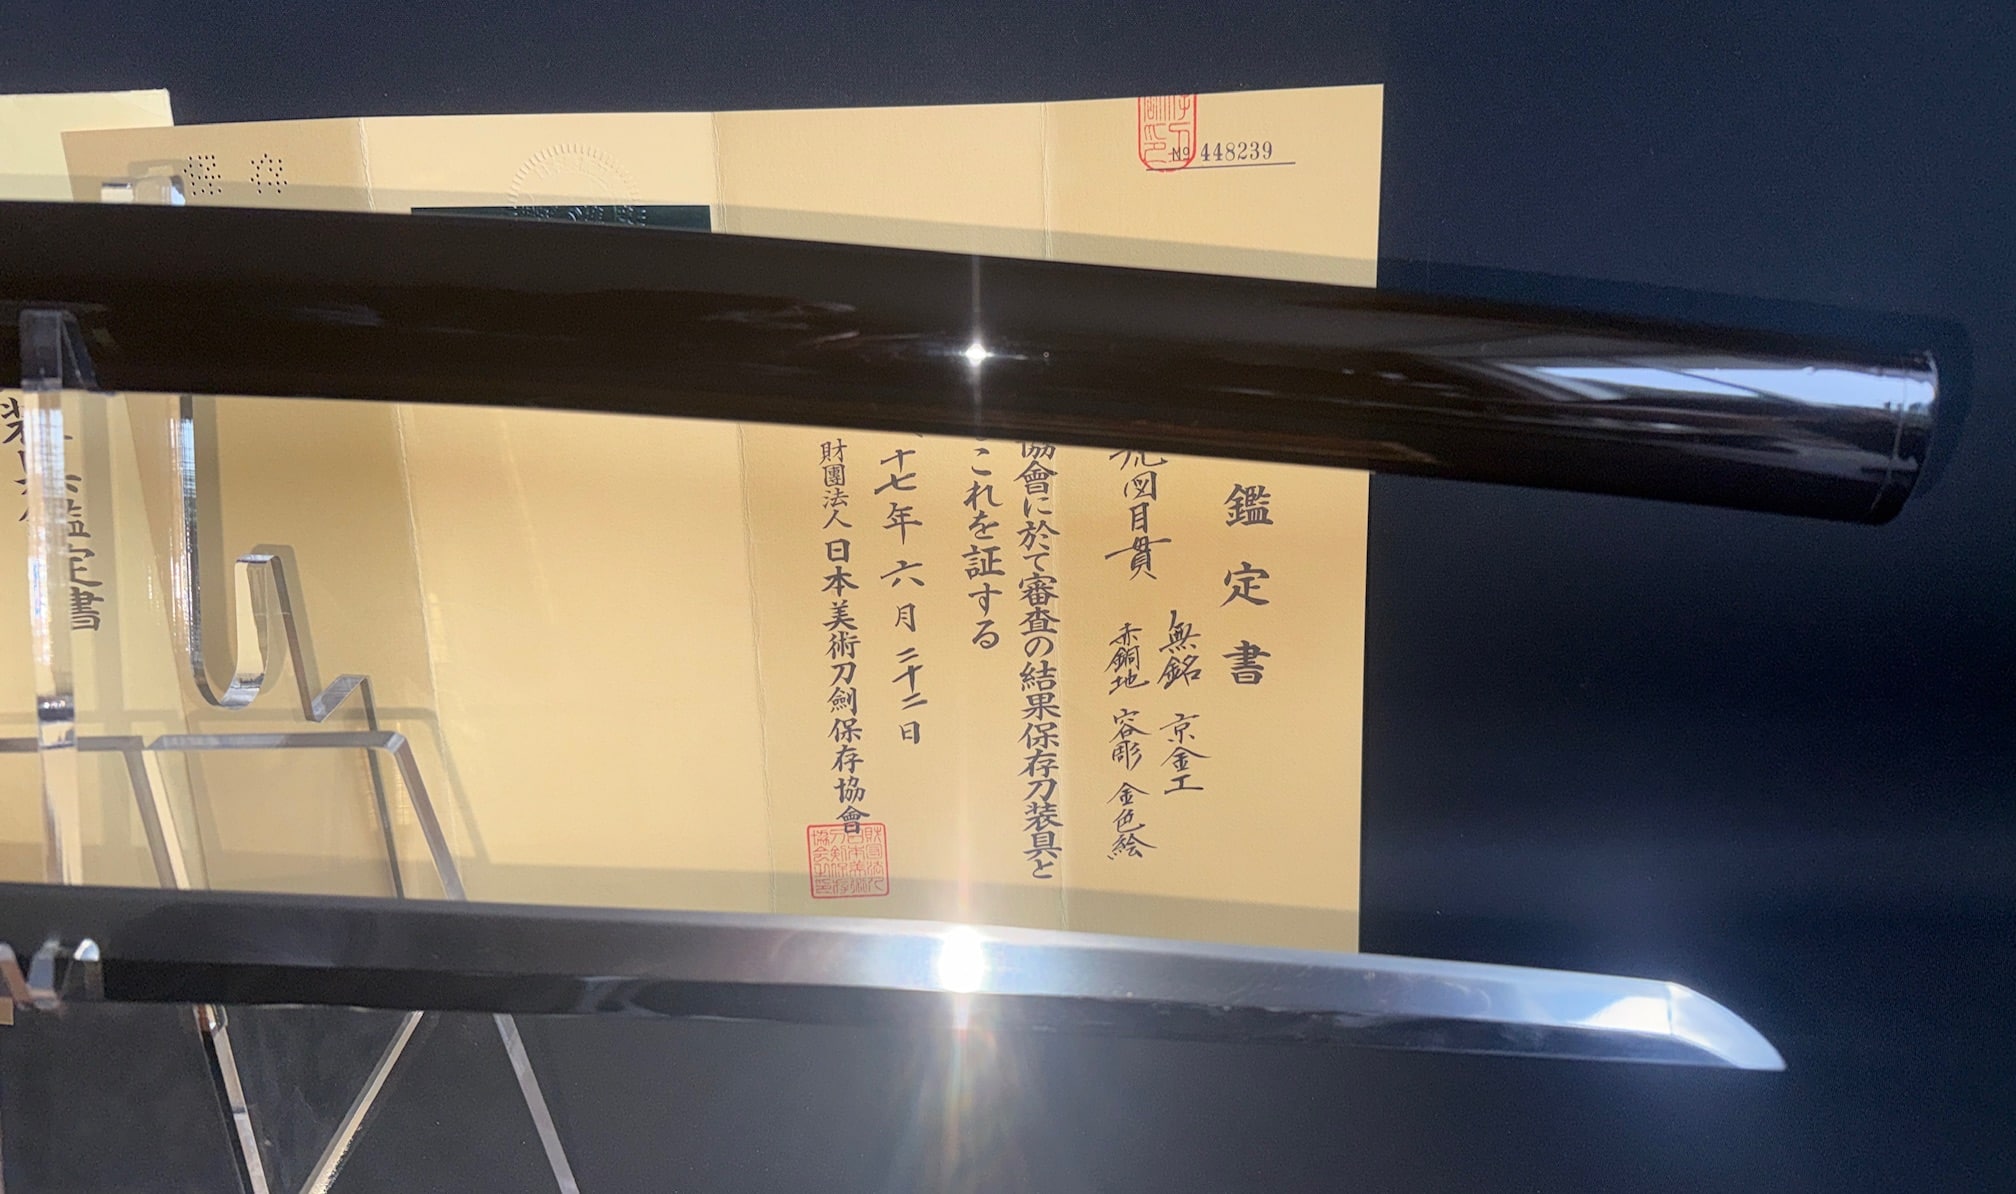 № 448239
鑑定書
無銘 京金工
図目貫 赤銅地 容彫 金色絵
協會に於て審査の結果保存刀装具と
これを証する
十七年六月二十二日
財團法人日本美術刀劍保存協會
鑑定書